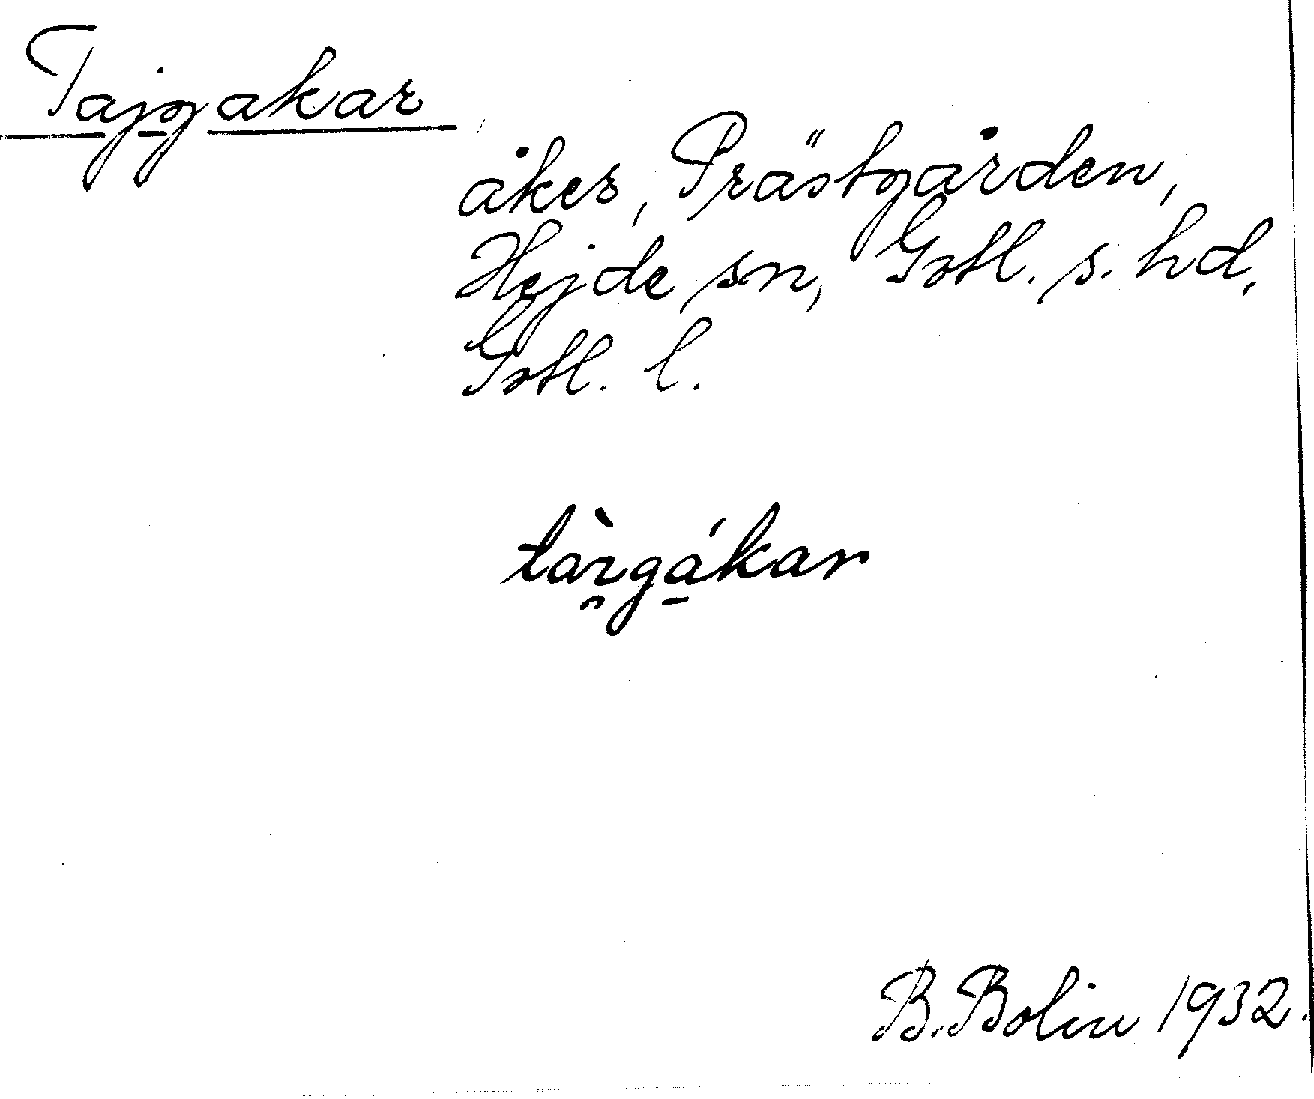 Tajgakar
åker, Prästgården,
Hejde sn, Gotl. s. hd,
Gotl. l.
B. Bolin 1932.